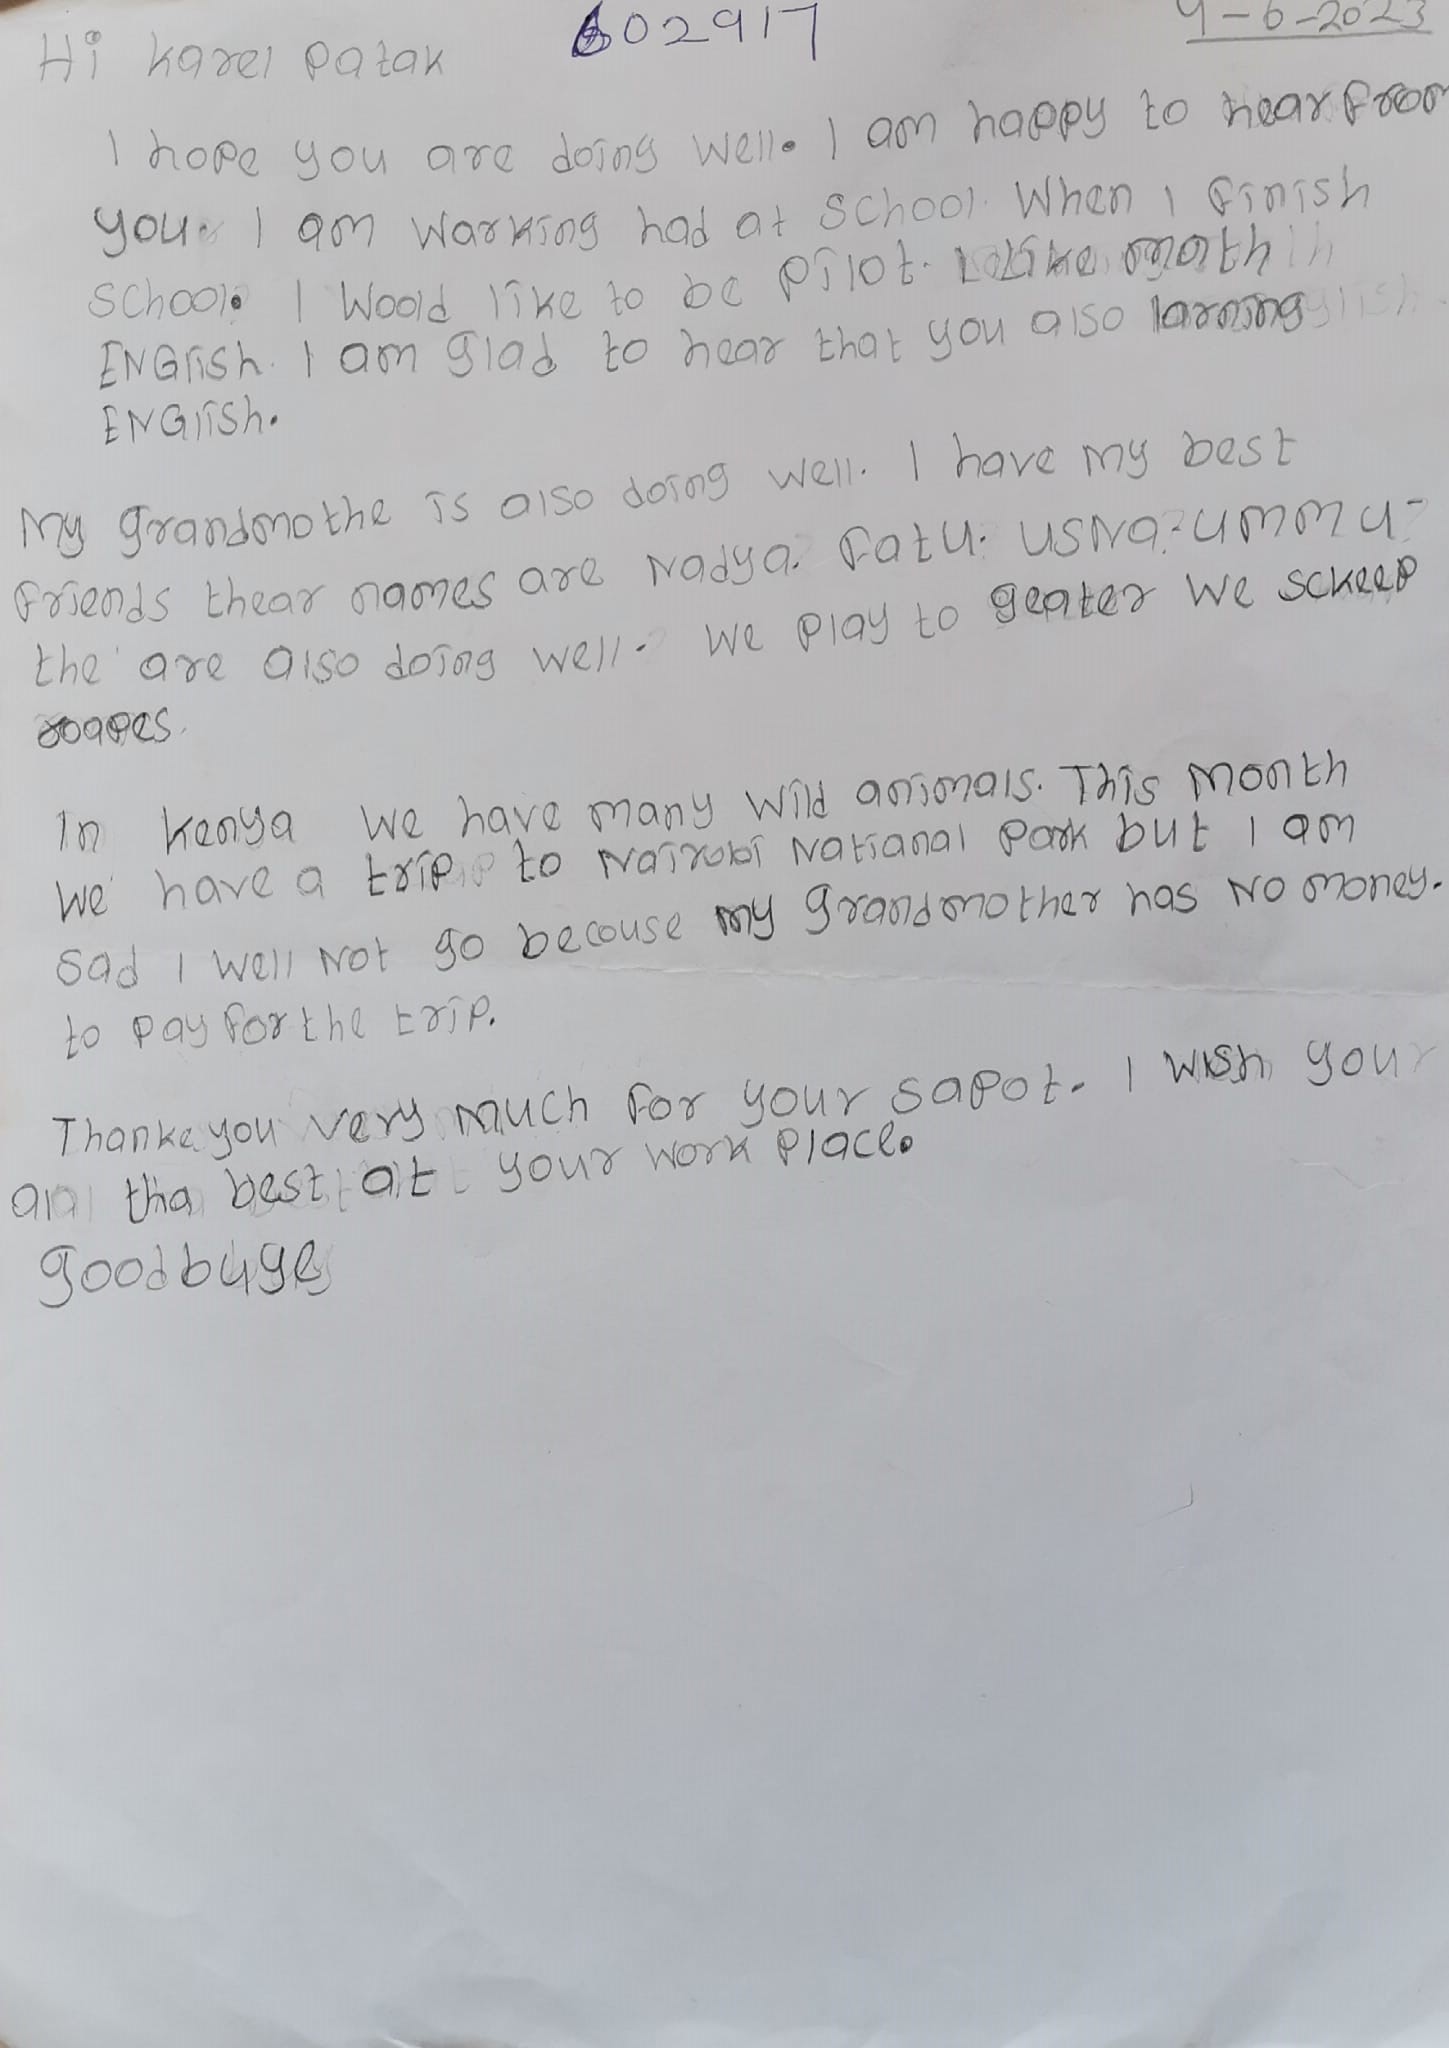 602917
9-6-2023
Hi Karel Patak
I hope you are doing well. I am happy to hear from
you. I am warking had at school. When I finish
school. I woold like to be pilot. I like math
ENGlish. I am glad to hear that you also larning
ENGlish.
My grandmothe is also doing well. I have my best
friends thear names are Nadya. Fatu. USNa. UMMU-
the are also doing well. We play to geater We sckeep
roapes.
In Kenya We have many wild animals. This Month
We have a trip to Nairobi National Park but I am
sad I well Not go becouse my grandmother has No money.
to pay for the trip.
Thanke you very much for your sapot. I wish your
all tha best at your work place.
goodbuye